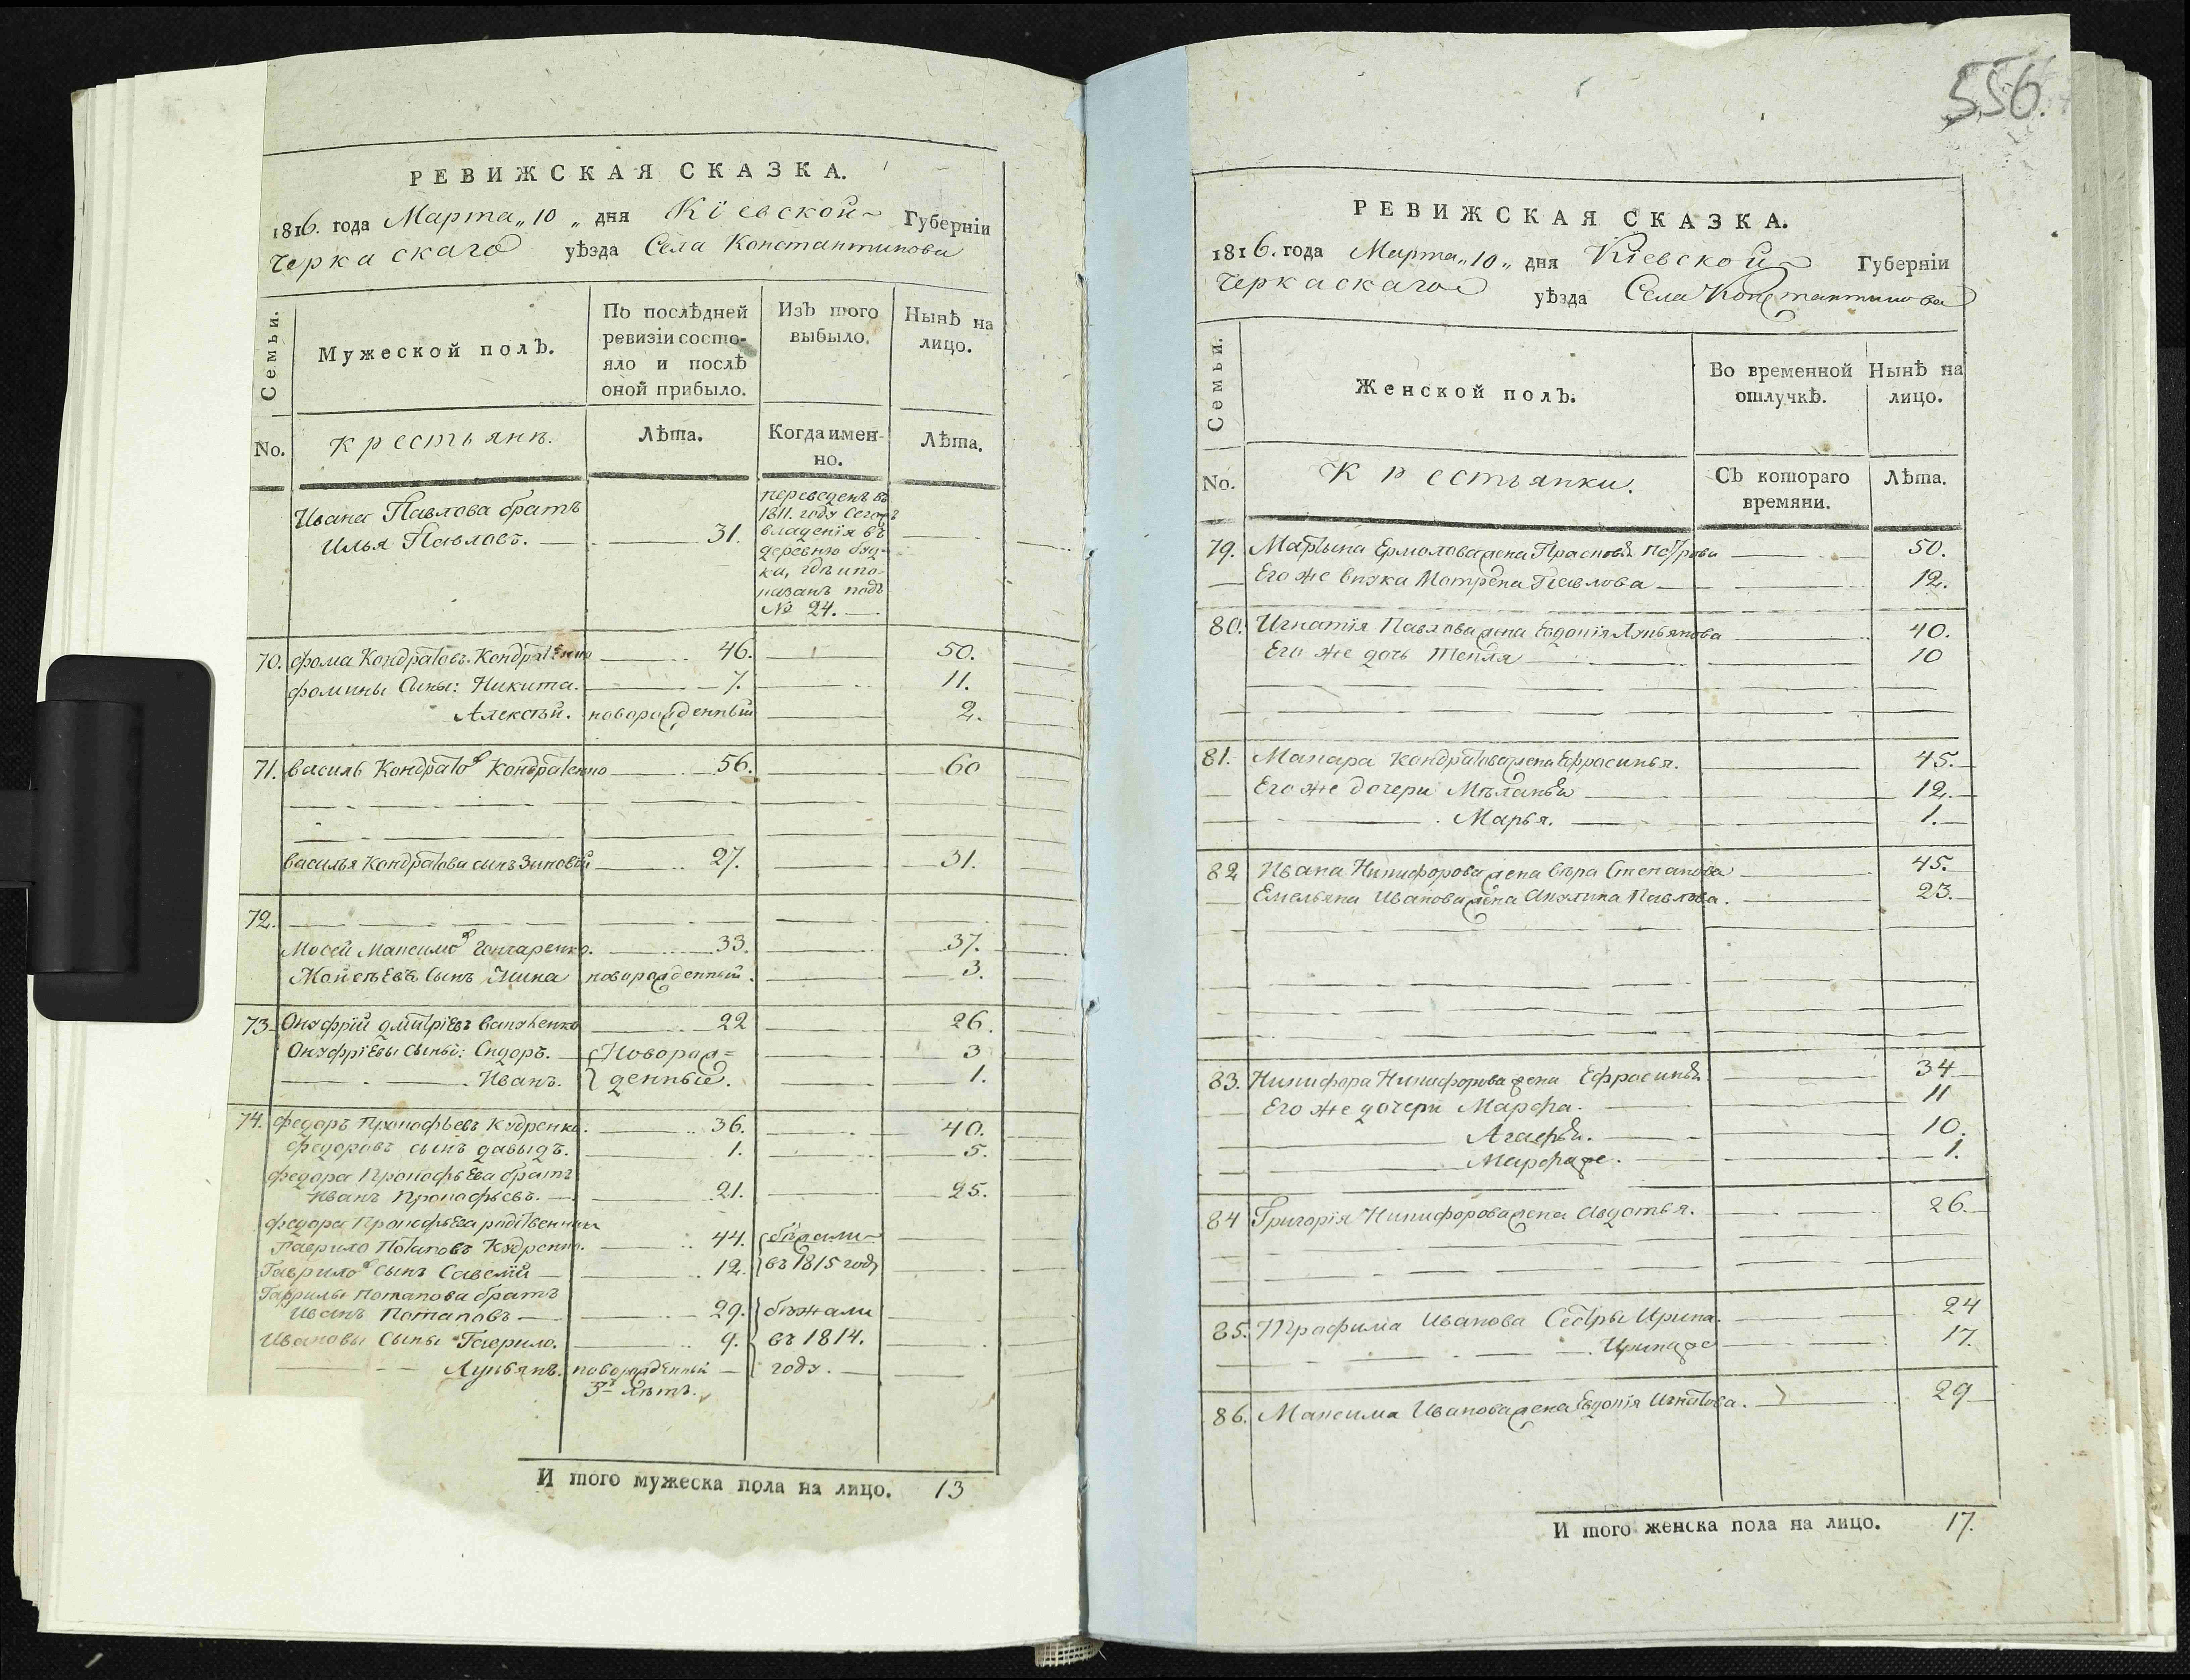 РЕВИЖСКАЯ СКАЗКА.
1816. года Марта „ 10 „ дня Кіевской Губерніи
Черкаскаго уѣзда Села Константинова
Семьи.
Мужеской полЪ.
По послѣдней ревизіи состояло и послѣ оной прибыло.
ИзЪ того выбыло.
Нынѣ на лицо.
No.
Крестьянъ.
Лѣта.
Когда именно.
Лѣта.
Ивана Павлова братъ
Илья Павловъ. 31.
переведенъ въ
1811. году
владенія въ
деревню Буд-
ка, гдѣ и по-
казанъ подъ
№ 24.
70. Фома Кондратовъ Кондратенко 46. 50.
Фомины Сыны: Никита. 7. 11.
Алексѣй. новорожденный 2.
71. Василь Кондратовъ Кондратенко 56. 60
Василья Кондратова сынъ Зиновій 27. 31.
72.
Мосей Максимовъ Гончаренко. 33. 37.
Мойсѣевъ Сынъ Мина новорожденный. 3.
73. Онуфрій Дмитріевъ 22 26.
Онуфріевы Сыны: Сидоръ. Новорож= 3
Иванъ. денные. 1.
74. Федоръ Прокофьевъ Кудренко. 36. 40.
Федоровъ сынъ Давыдъ. 1. 5.
Федора Прокофьева братъ
Иванъ Прокофьевъ. 21. 25.
Федора Прокофьева родственникъ
Гаврило Потаповъ Кудренко. 44. бѣжали
Гавриловъ Сынъ Савелій 12. въ 1815 году
Гаврилы Потапова братъ
Иванъ Потаповъ 29. бѣжали
Ивановы Сыны Гаврило. 9. въ 1814.
Лукьянъ. новорожденный году.
3х лѣтъ.
И того мужеска пола на лицо. 13
556.
РЕВИЖСКАЯ СКАЗКА.
1816. года Марта „ 10 „ дня Кіевской Губерніи
Черкаскаго уѣзда Села Константинова
Семьи.
Женской полЪ.
Во временной отлучкѣ.
Нынѣ на лицо.
No.
Крестьянки.
СЪ котораго времяни.
Лѣта.
79. Мартына Ермолова жена Прасковья Петрова 50.
Его же внука Мотрена Павлова 12.
80. Игнатія Павлова жена Евдокія Лукьянова 40.
Его же дочь Текля 10
81. Макара Кондратова жена Ефросинья. 45.
Его же дочери Мѣланья 12.
Марья. 1.
82 Ивана Никифорова жена Вѣра Степанова 45.
Емельяна Иванова жена Акулина Павлова. 23.
83. Никифора Никифорова жена Ефросинья. 34
Его же дочери Марфа. 11
Агафья. 10.
Марфа же. 1.
84 Григорія Никифорова жена Авдотья. 26.
85. Трофима Иванова Сестры Ирина. 24
Ирина же 17.
86. Максима Иванова жена Евдокія Игнатова. 29
И того женска пола на лицо. 17.